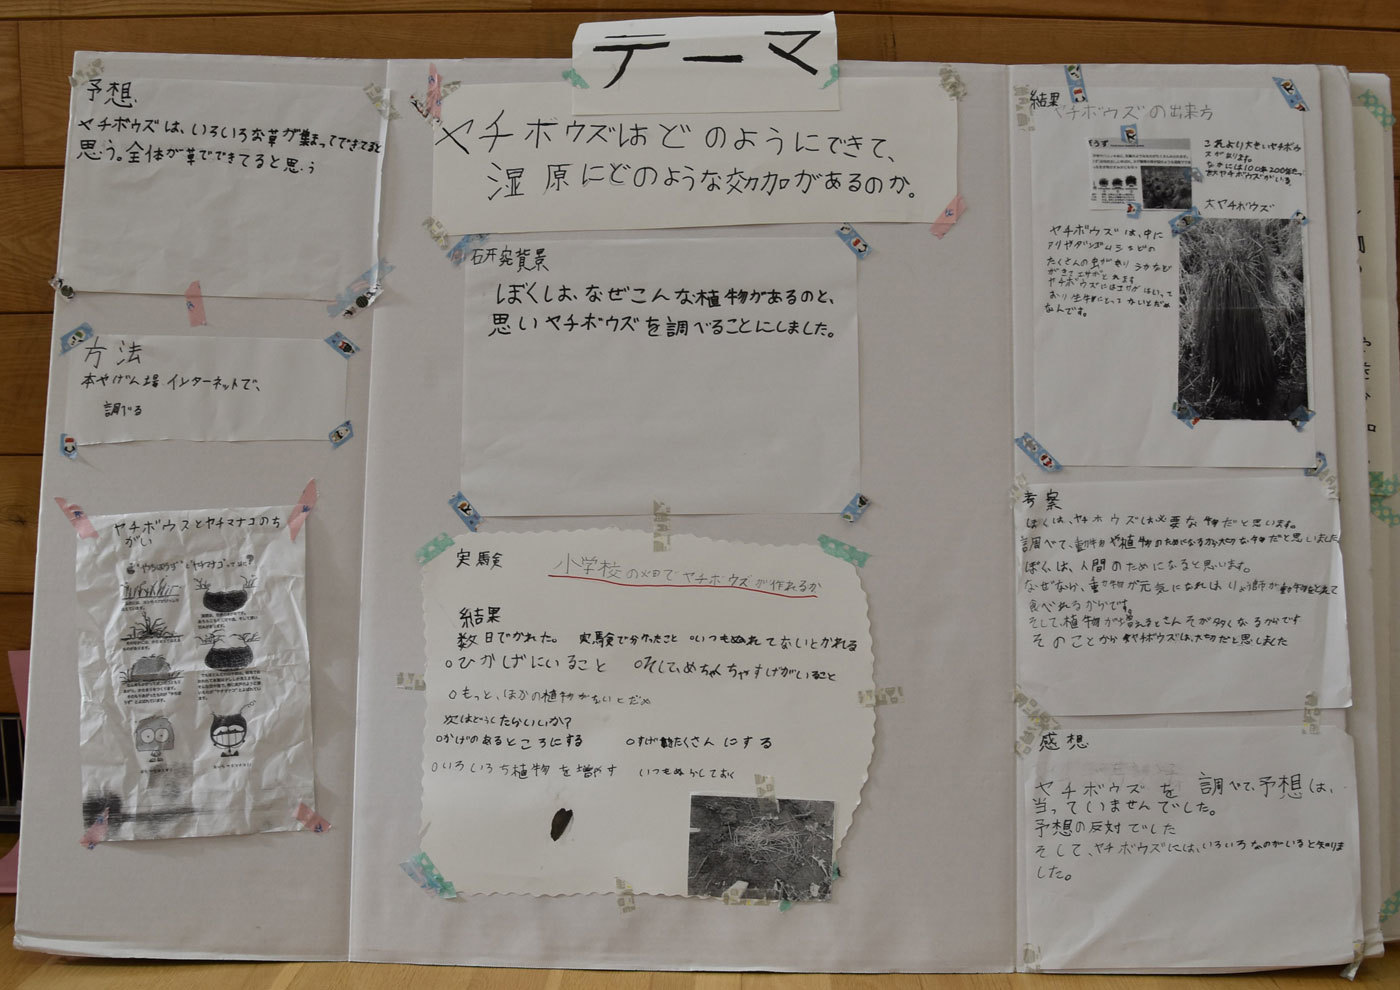 テーマ
ヤチボウズはどのようにできて、
湿原にどのような効加があるのか。
予想
ヤチボウズは、いろいろな草が集まってできてると
思う。全体が草でできてると思う
方法
本やげん場 インターネットで、
調べる
ヤチボウズとヤチマナコのち
がい
研究背景
ぼくは、なぜこんな植物があるのと、
思いヤチボウズを調べることにしました。
実験
小学校の畑でヤチボウズが作れるか
結果
数日でかれた。 実験で分かったこと ○いつもぬれてないとかれる
○ひかげにいること ○そして、めちゃんちゃすげがいること
○もっと、ほかの植物がないとだめ
次はどうしたらいいか?
○かげのあるところにする ○すげ たくさんにする
○いろいろち植物を増やす いつもぬらしておく
結果
ヤチボウズの出来方
これより大きいヤチボウ
ズがあります。
なかには100年200年たった
ヤチボウズがいる。
大ヤチボウズ
ヤチボウズは、中に
アリやダンゴムシなどの
たくさんの虫が
ヤチボウズには
なんです。
考案
ぼくは、ヤチボウズは必要な物だと思います。
調べて、動物や植物のためになるから大切な物だと思いました
ぼくは、人間のためになると思います。
なぜなら、動物が元気になればりょう師が動物をとれて
食べれるからです。
そして、植物が増えるとさんそが多くなるからです
そのことからヤチボウズは、大切だと思しました
感想
ヤチボウズを調べて、予想は、
当っていませんでした。
予想の反対でした
そして、ヤチボウズには、いろいろなのがいると知りま
した。